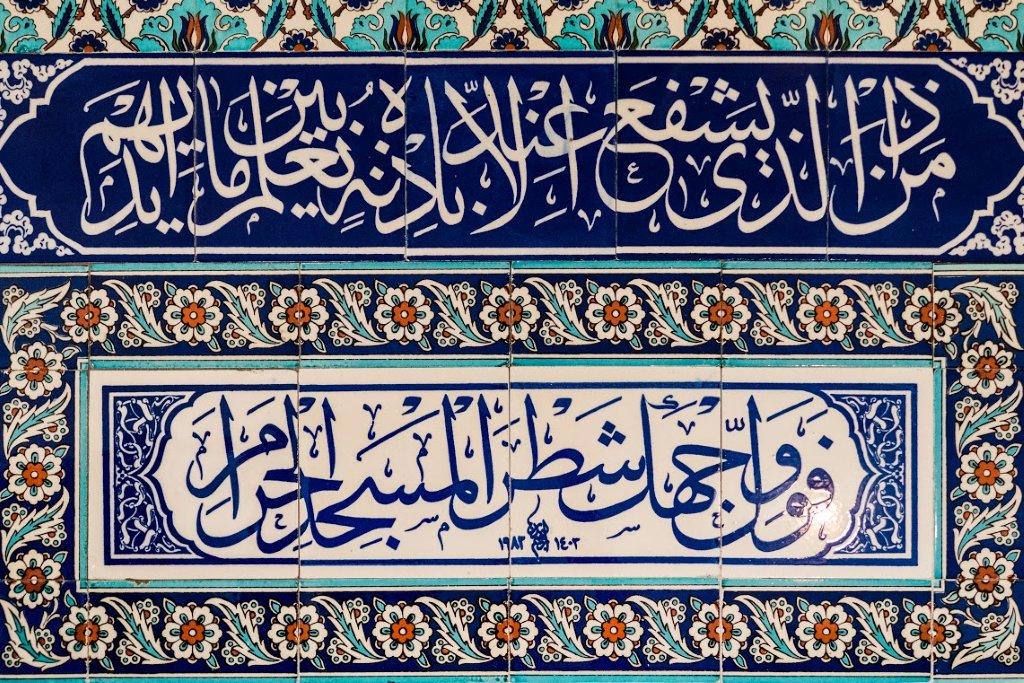 مَن ذَا الَّذِى يَشْفَعُ عِنْدَهُ اِلَّا بِاِذْنِهِ يَعْلَمُ مَا بَيْنَ اَيْدِيهِمْ
فَوَلِّ وَجْهَكَ شَطْرَ الْمَسْجِدِ الْحَرَامِ
١٤٠٣ ١٩٨٣